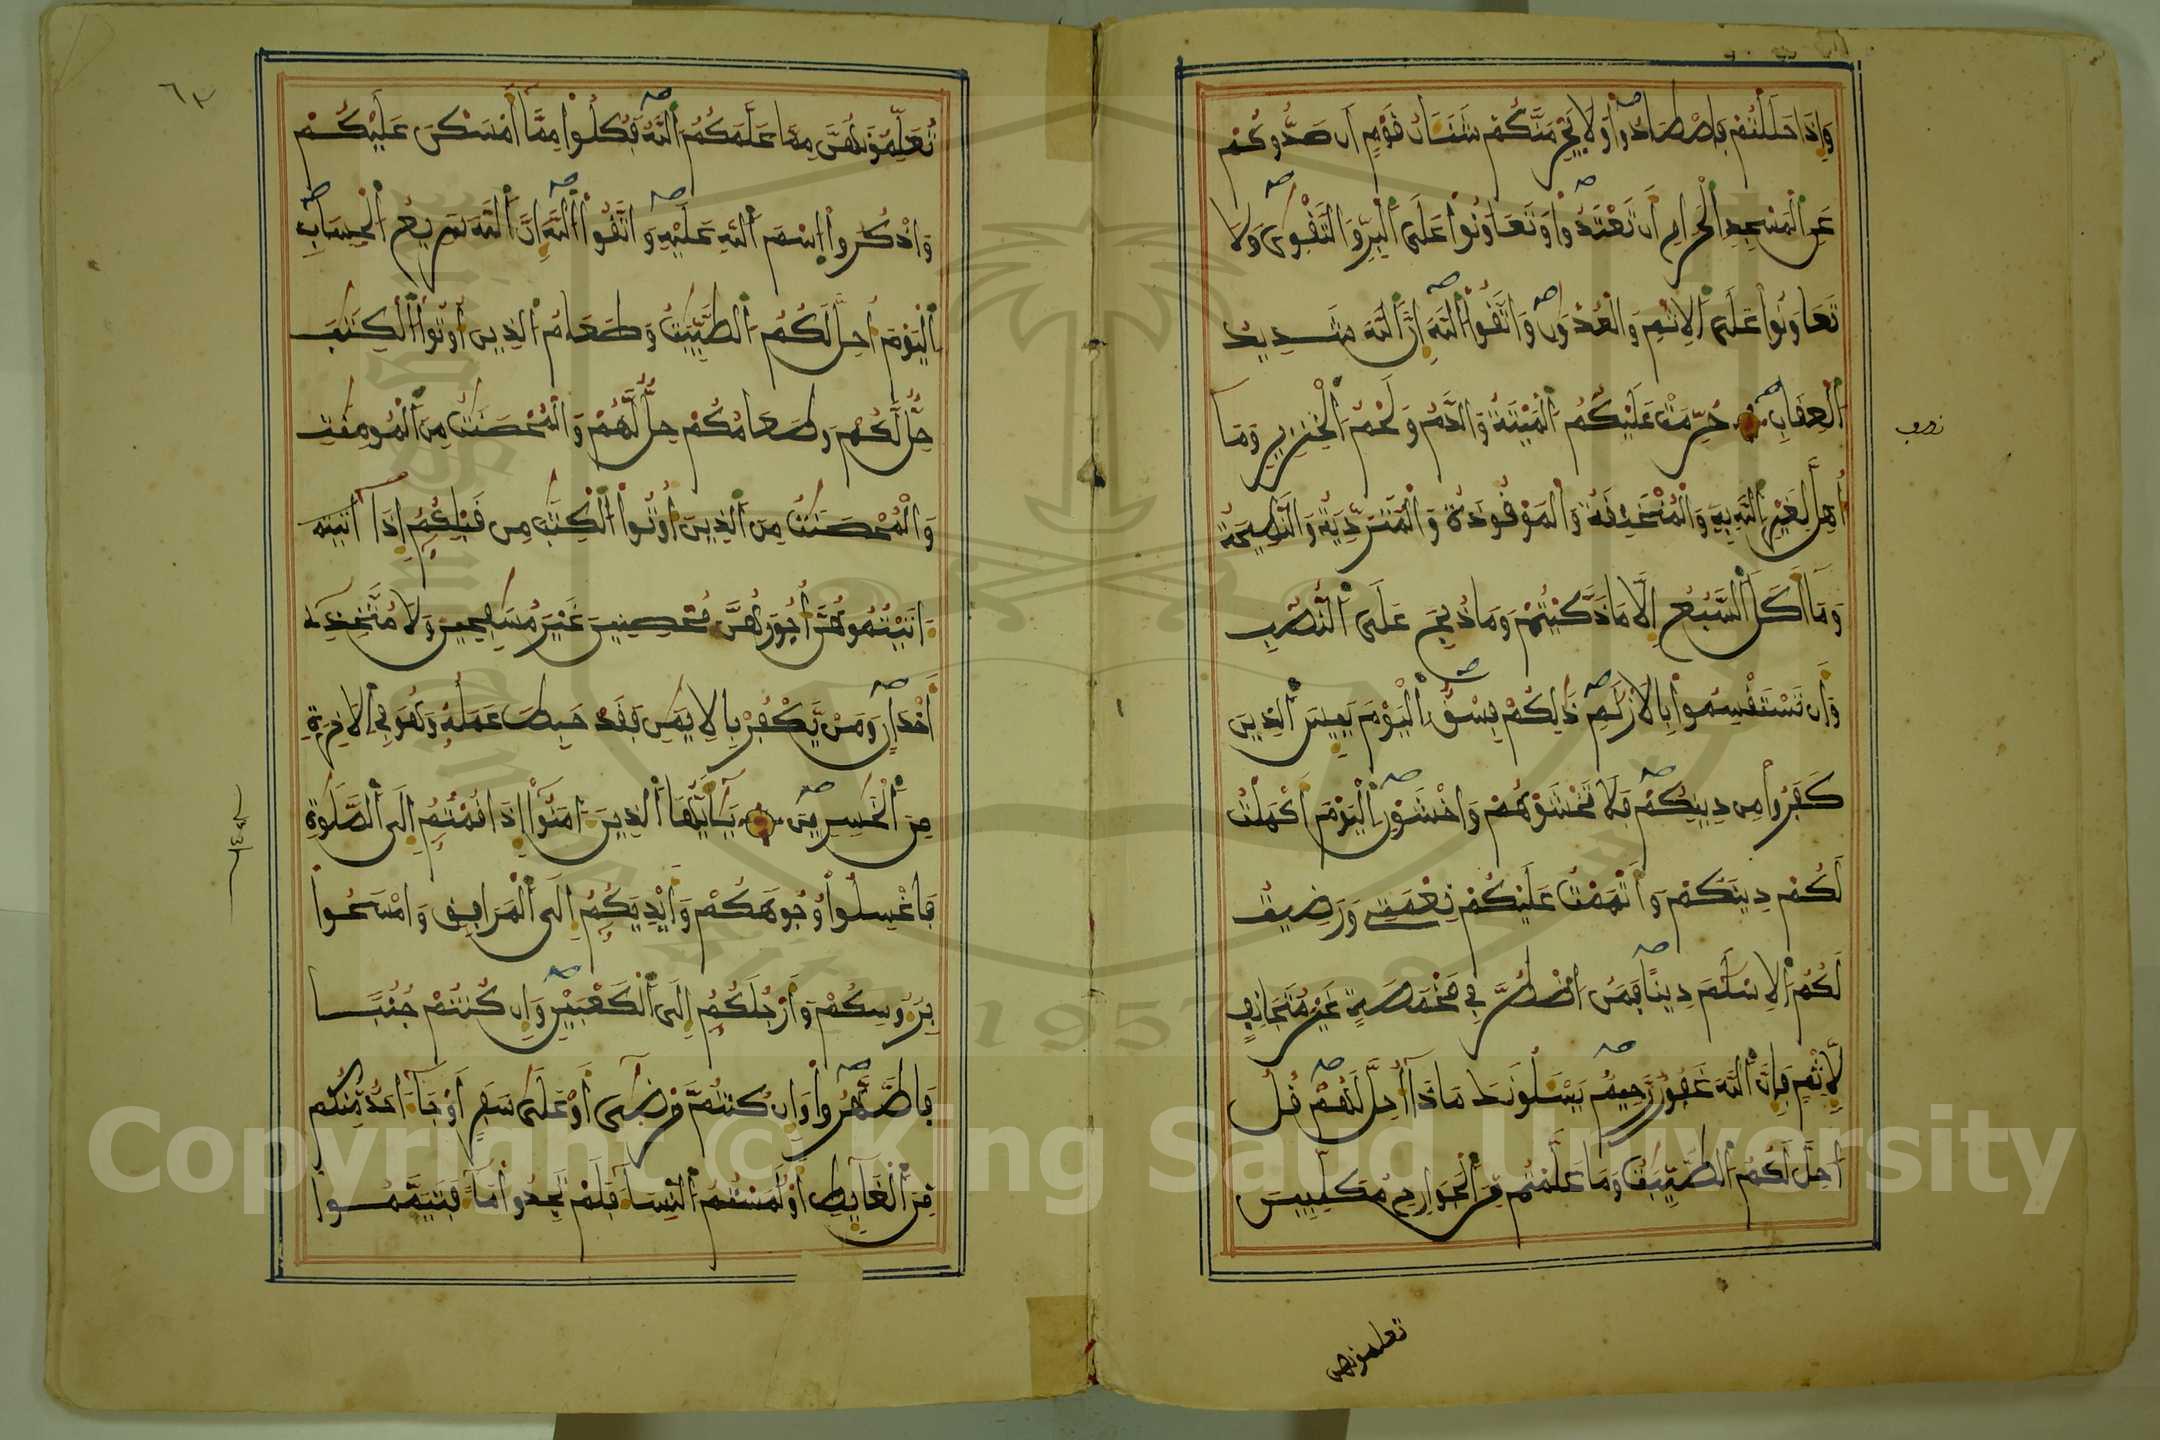 وَإِذَا حَلَلْتُمْ فَاصْطَادُوا وَلَا يَجْرِمَنَّكُمْ شَنَئَانُ قَوْمٍ أَن صَدُّوكُمْ
عَنِ الْمَسْجِدِ الْحَرَامِ أَن تَعْتَدُوا وَتَعَاوَنُوا عَلَى الْبِرِّ وَالتَّقْوَى وَلَا
تَعَاوَنُوا عَلَى الْإِثْمِ وَالْعُدْوَٰنِ وَاتَّقُوا اللَّهَ إِنَّ اللَّهَ شَدِيدُ
الْعِقَابِ حُرِّمَتْ عَلَيْكُمُ الْمَيْتَةُ وَالدَّمُ وَلَحْمُ الْخِنزِيرِ وَمَا
أُهِلَّ لِغَيْرِ اللَّهِ بِهِ وَالْمُنْخَنِقَةُ وَالْمَوْقُوذَةُ وَالْمُتَرَدِّيَةُ وَالنَّطِيحَةُ
وَمَا أَكَلَ السَّبُعُ إِلَّا مَا ذَكَّيْتُمْ وَمَا ذُبِحَ عَلَى النُّصُبِ
وَأَن تَسْتَقْسِمُوا بِالْأَزْلَٰمِ ذَٰلِكُمْ فِسْقٌ الْيَوْمَ يَئِسَ الَّذِينَ
كَفَرُوا مِن دِينِكُمْ فَلَا تَخْشَوْهُمْ وَاخْشَوْنِ الْيَوْمَ أَكْمَلْتُ
لَكُمْ دِينَكُمْ وَأَتْمَمْتُ عَلَيْكُمْ نِعْمَتِي وَرَضِيتُ
لَكُمُ الْإِسْلَٰمَ دِينًا فَمَنُ اضْطُرَّ فِي مَخْمَصَةٍ غَيْرَ مُتَجَانِفٍ
لِّإِثْمٍ فَإِنَّ اللَّهَ غَفُورٌ رَّحِيمٌ يَسْـَٔلُونَكَ مَاذَا أُحِلَّ لَهُمْ قُلْ
أُحِلَّ لَكُمُ الطَّيِّبَٰتُ وَمَا عَلَّمْتُم مِّنَ الْجَوَارِحِ مُكَلِّبِينَ
تعلمونهن
٦٣
تُعَلِّمُونَهُنَّ مِمَّا عَلَّمَكُمُ اللَّهُ فَكُلُوا مِمَّا أَمْسَكْنَ عَلَيْكُمْ
وَاذْكُرُوا اسْمَ اللَّهِ عَلَيْهِ وَاتَّقُوا اللَّهَ إِنَّ اللَّهَ سَرِيعُ الْحِسَابِ
الْيَوْمَ أُحِلَّ لَكُمُ الطَّيِّبَٰتُ وَطَعَامُ الَّذِينَ أُوتُوا الْكِتَٰبَ
حِلٌّ لَّكُمْ وَطَعَامُكُمْ حِلٌّ لَّهُمْ وَالْمُحْصَنَٰتُ مِنَ الْمُومِنَٰتِ
وَالْمُحْصَنَٰتُ مِنَ الَّذِينَ أُوتُوا الْكِتَٰبَ مِن قَبْلِكُمُ إِذَا
ءَاتَيْتُمُوهُنَّ أُجُورَهُنَّ مُحْصِنِينَ غَيْرَ مُسَٰفِحِينَ وَلَا مُتَّخِذِي
أَخْدَانٍ وَمَنْ يَّكْفُرْ بِالْإِيمَٰنِ فَقَدْ حَبِطَ عَمَلُهُ وَهُوَ فِي الْأَخِرَةِ
مِنَ الْخَٰسِرِينَ يَٰأَيُّهَا الَّذِينَ ءَامَنُوا إِذَا قُمْتُمُ إِلَى الصَّلَوٰةِ
فَاغْسِلُوا وُجُوهَكُمْ وَأَيْدِيَكُمُ إِلَى الْمَرَافِقِ وَامْسَحُوا
بِرُءُوسِكُمْ وَأَرْجُلَكُمُ إِلَى الْكَعْبَيْنِ وَإِن كُنتُمْ جُنُبًا
فَاطَّهَّرُوا وَإِن كُنتُم مَّرْضَىٰ أَوْ عَلَىٰ سَفَرٍ أَوْ جَاءَ احَدٌ مِّنكُم
مِّنَ الْغَائِطِ أَوْ لَٰمَسْتُمُ النِّسَاءَ فَلَمْ تَجِدُوا مَاءً فَتَيَمَّمُوا
Copyright © King Saud University
1957